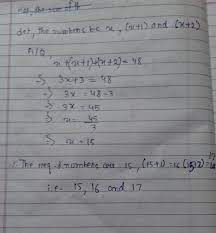 Let, the numbers be x, (x+1) and (x+2)
A/Q
x+(x+1)+(x+2)=48
⇒ 3x+3=48
⇒ 3x=48-3
⇒ 3x=45
⇒ x=45/3
⇒ x=15
∴ The req.d numbers are 15, (15+1)=16 (15+2)=17
i.e. 15, 16 and 17